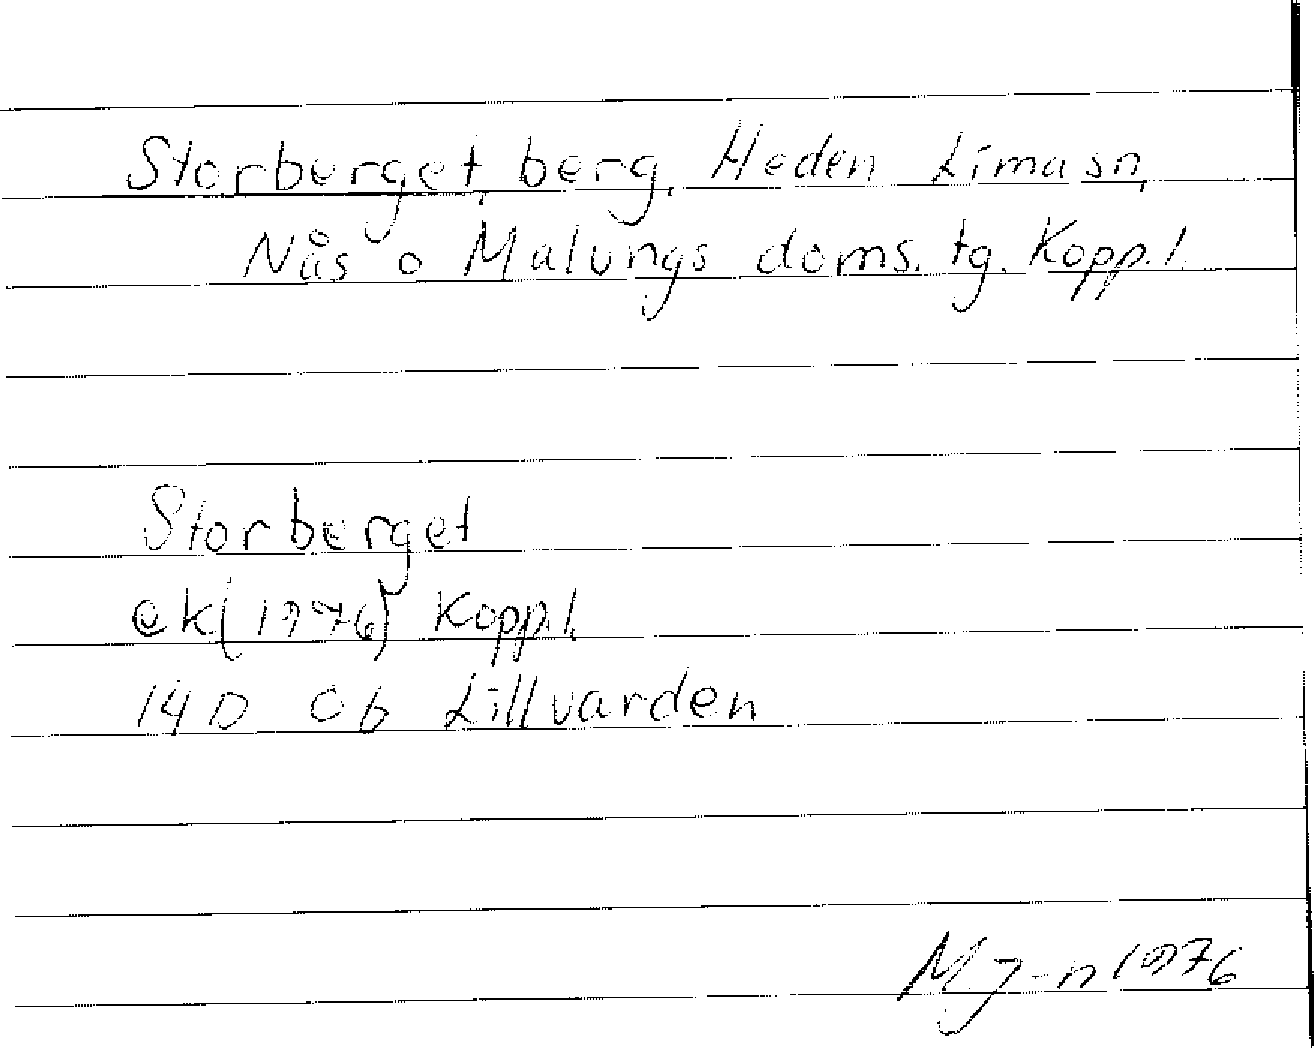 Storberget, berg, Heden Lima sn,
Nås o Malungs doms. tg. Kopp. l.
Storberget
ek (1976) Kopp.l.
14D Cb Lillvarden
MJ-n 1976